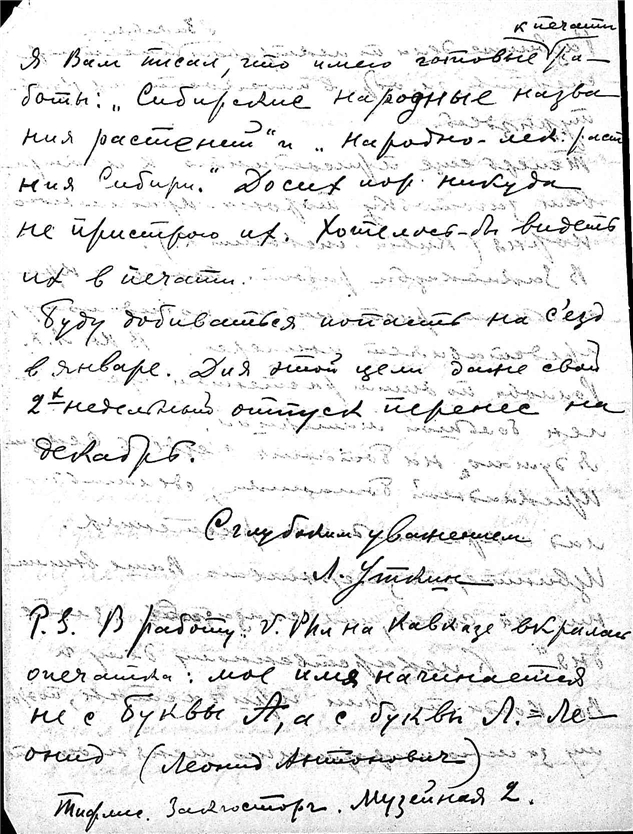 к печати
Я Вам писал, что имею готовые ра-
боты: „Сибирские народные назва
ния растений" и „Народно-лек. раст
ния Сибири." До сих пор никуда
не пристрою их. Хотелось-бы видеть
их в печати.
Буду добиваться попасть на с'езд
в январе. Для этой цели даже свой
2х недельный отпуск перенес на
декабрь.
С глубоким уважением
Л. Уткин
P.S. В работу „V. Phil на Кавказе" вкралась
опечатка: мое имя начинается
не с буквы А, а с буквы Л. = Ле-
онид (Леонид Антонович)
Тифлис. Закгосторг. Музейная 2.